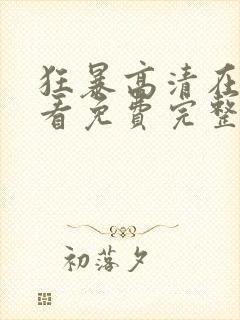 狂暴高清在
看免费完整
初落夕